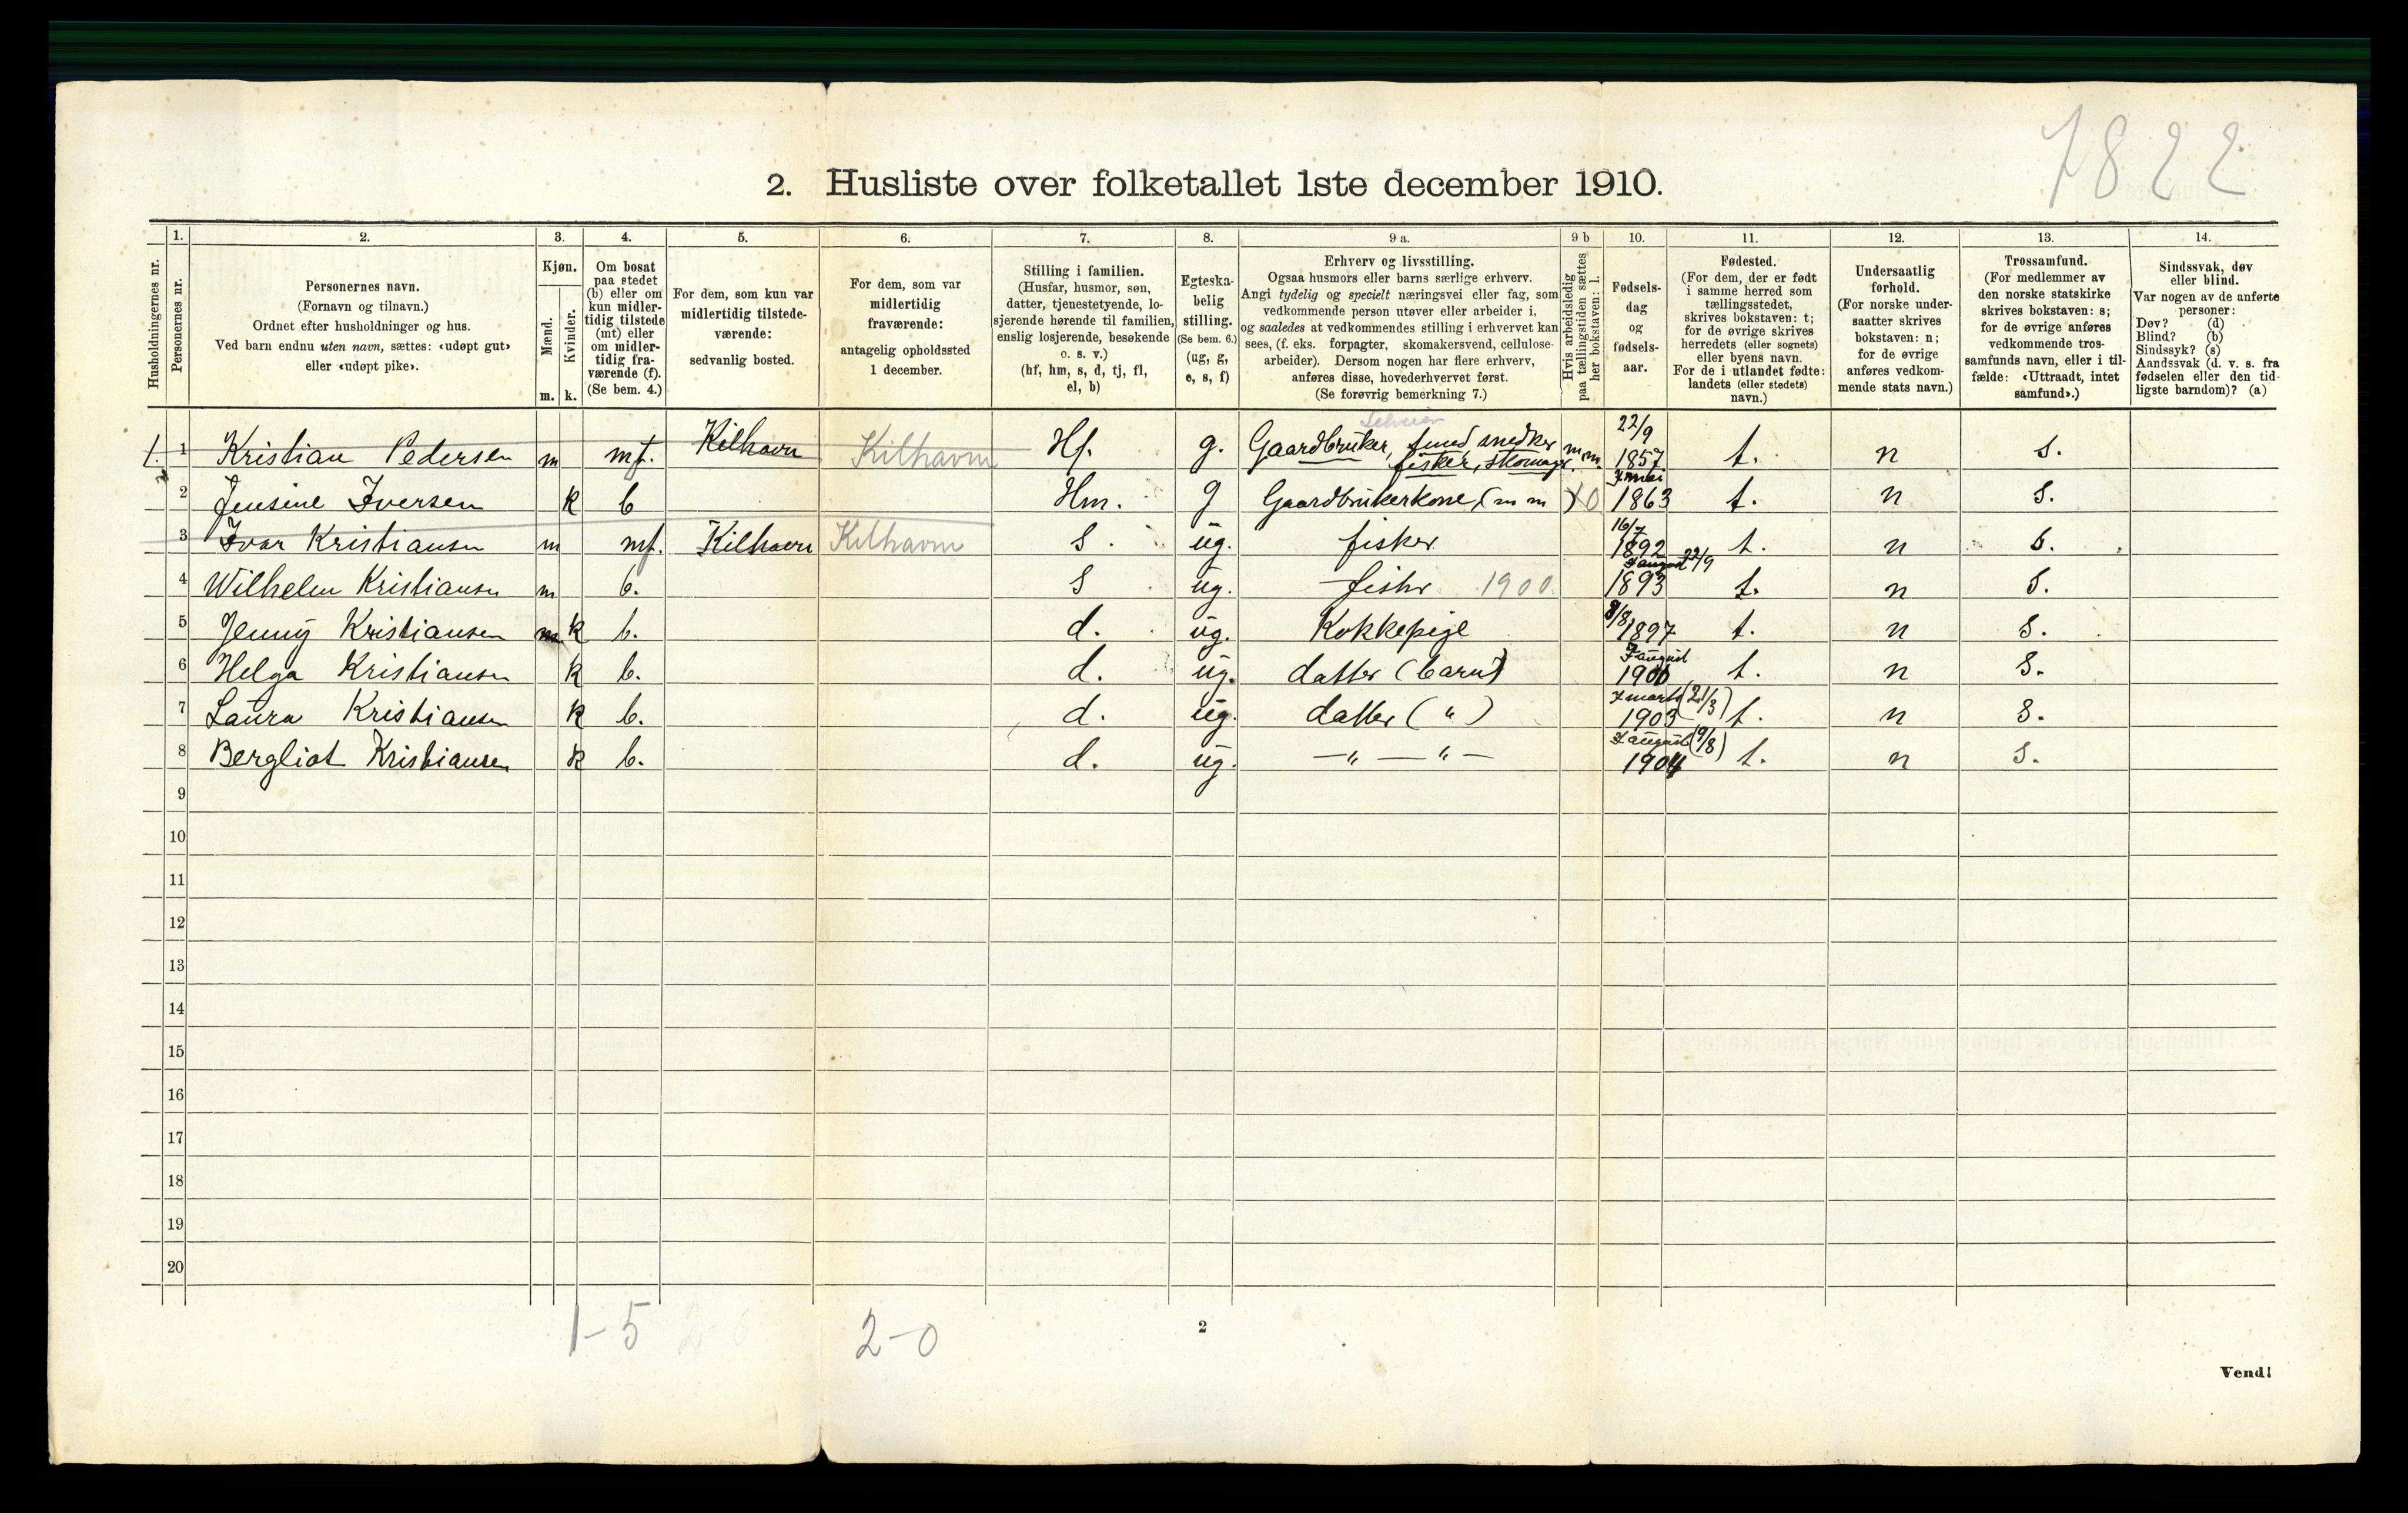 7822
2. Husliste over folketallet 1ste december 1910.
1. 2. 3. 4. 5. 6. 7. 8. 9 a. 9 b 10. 11. 12. 13. 14.
Husholdningernes nr.
Personernes nr.
Personernes navn.
(Fornavn og tilnavn.)
Ordnet efter husholdninger og hus.
Ved barn endnu uten navn, sættes: «udøpt gut»
eller «udøpt pike».
Kjøn.
Mænd.
Kvinder.
m. k.
Om bosat
paa stedet
(b) eller om
kun midler-
tidig tilstede
(mt) eller
om midler-
tidig fra-
værende (f).
(Se bem. 4.)
For dem, som kun var
midlertidig tilstede-
værende:
sedvanlig bosted.
For dem, som var
midlertidig
fraværende:
antagelig opholdssted
1 december.
Stilling i familien.
(Husfar, husmor, søn,
datter, tjenestetyende, lo-
sjerende hørende til familien,
enslig losjerende, besøkende
o. s. v.)
(hf, hm, s, d, tj, fl,
el, b)
Egteska-
belig
stilling.
(Se bem. 6.)
(ug, g,
e, s, f)
Erhverv og livsstilling.
Ogsaa husmors eller barns særlige erhverv.
Angi tydelig og specielt næringsvei eller fag, som
vedkommende person utøver eller arbeider i,
og saaledes at vedkommendes stilling i erhvervet kan
sees, (f. eks. forpagter, skomakersvend, cellulose-
arbeider). Dersom nogen har flere erhverv,
anføres disse, hovederhvervet først.
(Se forøvrig bemerkning 7.)
Hvis arbeidsledig
paa tællingstiden sættes
her bokstaven: l.
Fødsels-
dag
og
fødsels-
aar.
Fødested.
(For dem, der er født
i samme herred som
tællingsstedet,
skrives bokstaven: t;
for de øvrige skrives
herredets (eller sognets)
eller byens navn.
For de i utlandet fødte:
landets (eller stedets)
navn.)
Undersaatlig
forhold.
(For norske under-
saatter skrives
bokstaven: n;
for de øvrige
anføres vedkom-
mende stats navn.)
Trossamfund.
(For medlemmer av
den norske statskirke
skrives bokstaven: s;
for de øvrige anføres
vedkommende tros-
samfunds navn, eller i til-
fælde: «Uttraadt, intet
samfund».)
Sindssvak, døv
eller blind.
Var nogen av de anførte
personer:
Døv? (d)
Blind? (b)
Sindssyk? (s)
Aandssvak (d. v. s. fra
fødselen eller den tid-
ligste barndom)? (a)
1. 1 Kristian Pedersen m mf. Kilhavn Kilhavn Hf. g. Gaardbruker, smed snedker fisker, skomager m.m. 22/9 1857 t. n s.
2 Jensine Iversen k b Hm. g Gaardbrukerkone, (m m) 0 7 mai 1863 t. n s.
3 Ivar Kristiansen m mf. Kilhavn Kilhavn s. ug. fisker 16/7 1892 t. n s.
4 Wilhelm Kristiansen m b. s ug. fisker 1900 22/9 1893 t. n s.
5 Jenny Kristiansen k b. d. ug. Kokkepige 8/8 1897 t. n s.
6 Helga Kristiansen k b. d. ug. datter (barn) 7 august t. n s.
7 Laura Kristiansen k b. d. ug. datter ( " ) 7 marts (21/3) 1903 t. n s.
8 Bergliot Kristiansen k b. d. ug. — " — " — 7 august (9/8) 1904 t. n s.
9
10
11
12
13
14
15
16
17
18
19
20
1-5 2-0
2
Vend!